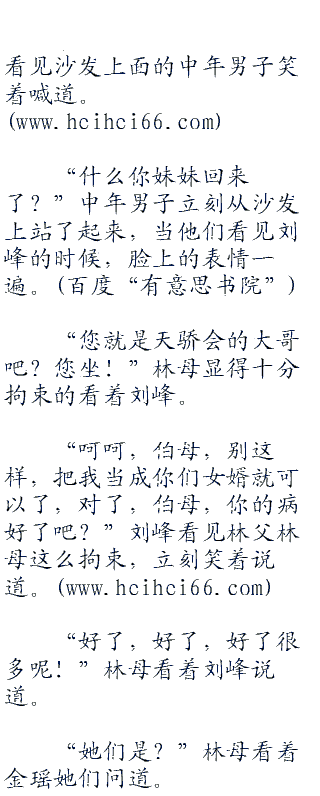 看见沙发上面的中年男子笑
着喊道。
(www.hcihci66.com)
“什么你妹妹回来
了？”中年男子立刻从沙发
上站了起来，当他们看见刘
峰的时候，脸上的表情一
遍。(百度“有意思书院”)
“您就是天骄会的大哥
吧？您坐！”林母显得十分
拘束的看着刘峰。
“呵呵，伯母，别这
样，把我当成你们女婿就可
以了，对了，伯母，你的病
好了吧？”刘峰看见林父林
母这么拘束，立刻笑着说
道。(www.hcihci66.com)
“好了，好了，好了很
多呢！”林母看着刘峰说
道。
“她们是？”林母看着
金瑶她们问道。